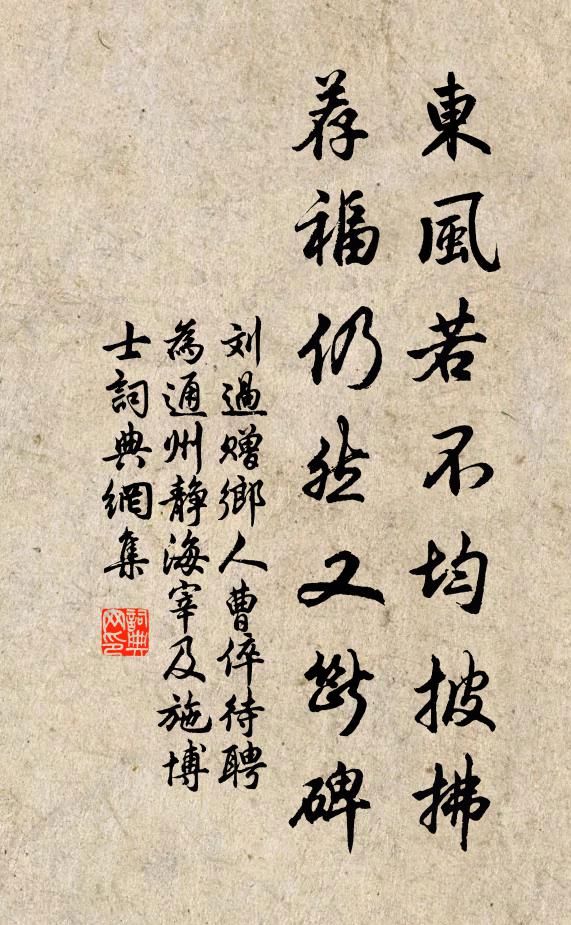 東風若不均披拂
荐福仍然又斷碑
刘過贈鄉人曹倅待聘
為通州静海宰及施博
士詞典網集
詞典网印